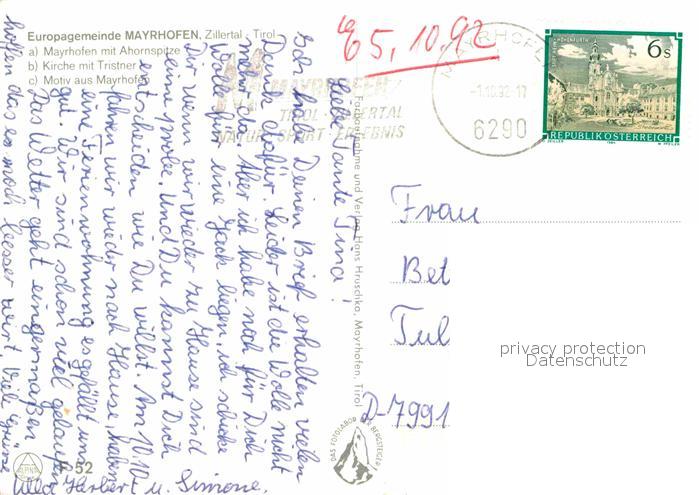 Europagemeinde MAYRHOFEN, Zillertal - Tirol
a) Mayrhofen mit Ahornspitze
b) Kirche mit Tristner
c) Motiv aus Mayrhofen
E 5.10.92
MAYRHOFEN
-1.10.92-17
6290
MAYRHOFEN
TIROL · ZILLERTAL
NATUR · SPORT · ERLEBNIS
6 s
REPUBLIK ÖSTERREICH
Liebe Tante Tina!
Hab Deinen Brief erhalten vielen
Dank dafür. Leider ist die Wolle nicht
mehr da. Aber ich habe noch für Dich
Wolle für eine Jack liegen, ich schicke
Dir wenn wir wieder zu Hause sind
eine probe. Und Du kannst Dich
entscheiden wie Du willst. Am 10.10
fahren wir wieder nach Hause, haben
eine Ferienwohnung es gefällt uns
gut. Wir sind schon viel gelaufen
Das Wetter geht einigermaßen
hoffen das es noch besser wird. Viel Grüsse
Herbert u. Simone.
Farbaufnahme und Verlag Hans Hruschka, Mayrhofen, Tirol
Frau
Bet
Tul
privacy protection
Datenschutz
D-7991
DAS FOTOLABOR DER BERGSTEIGER
F 52